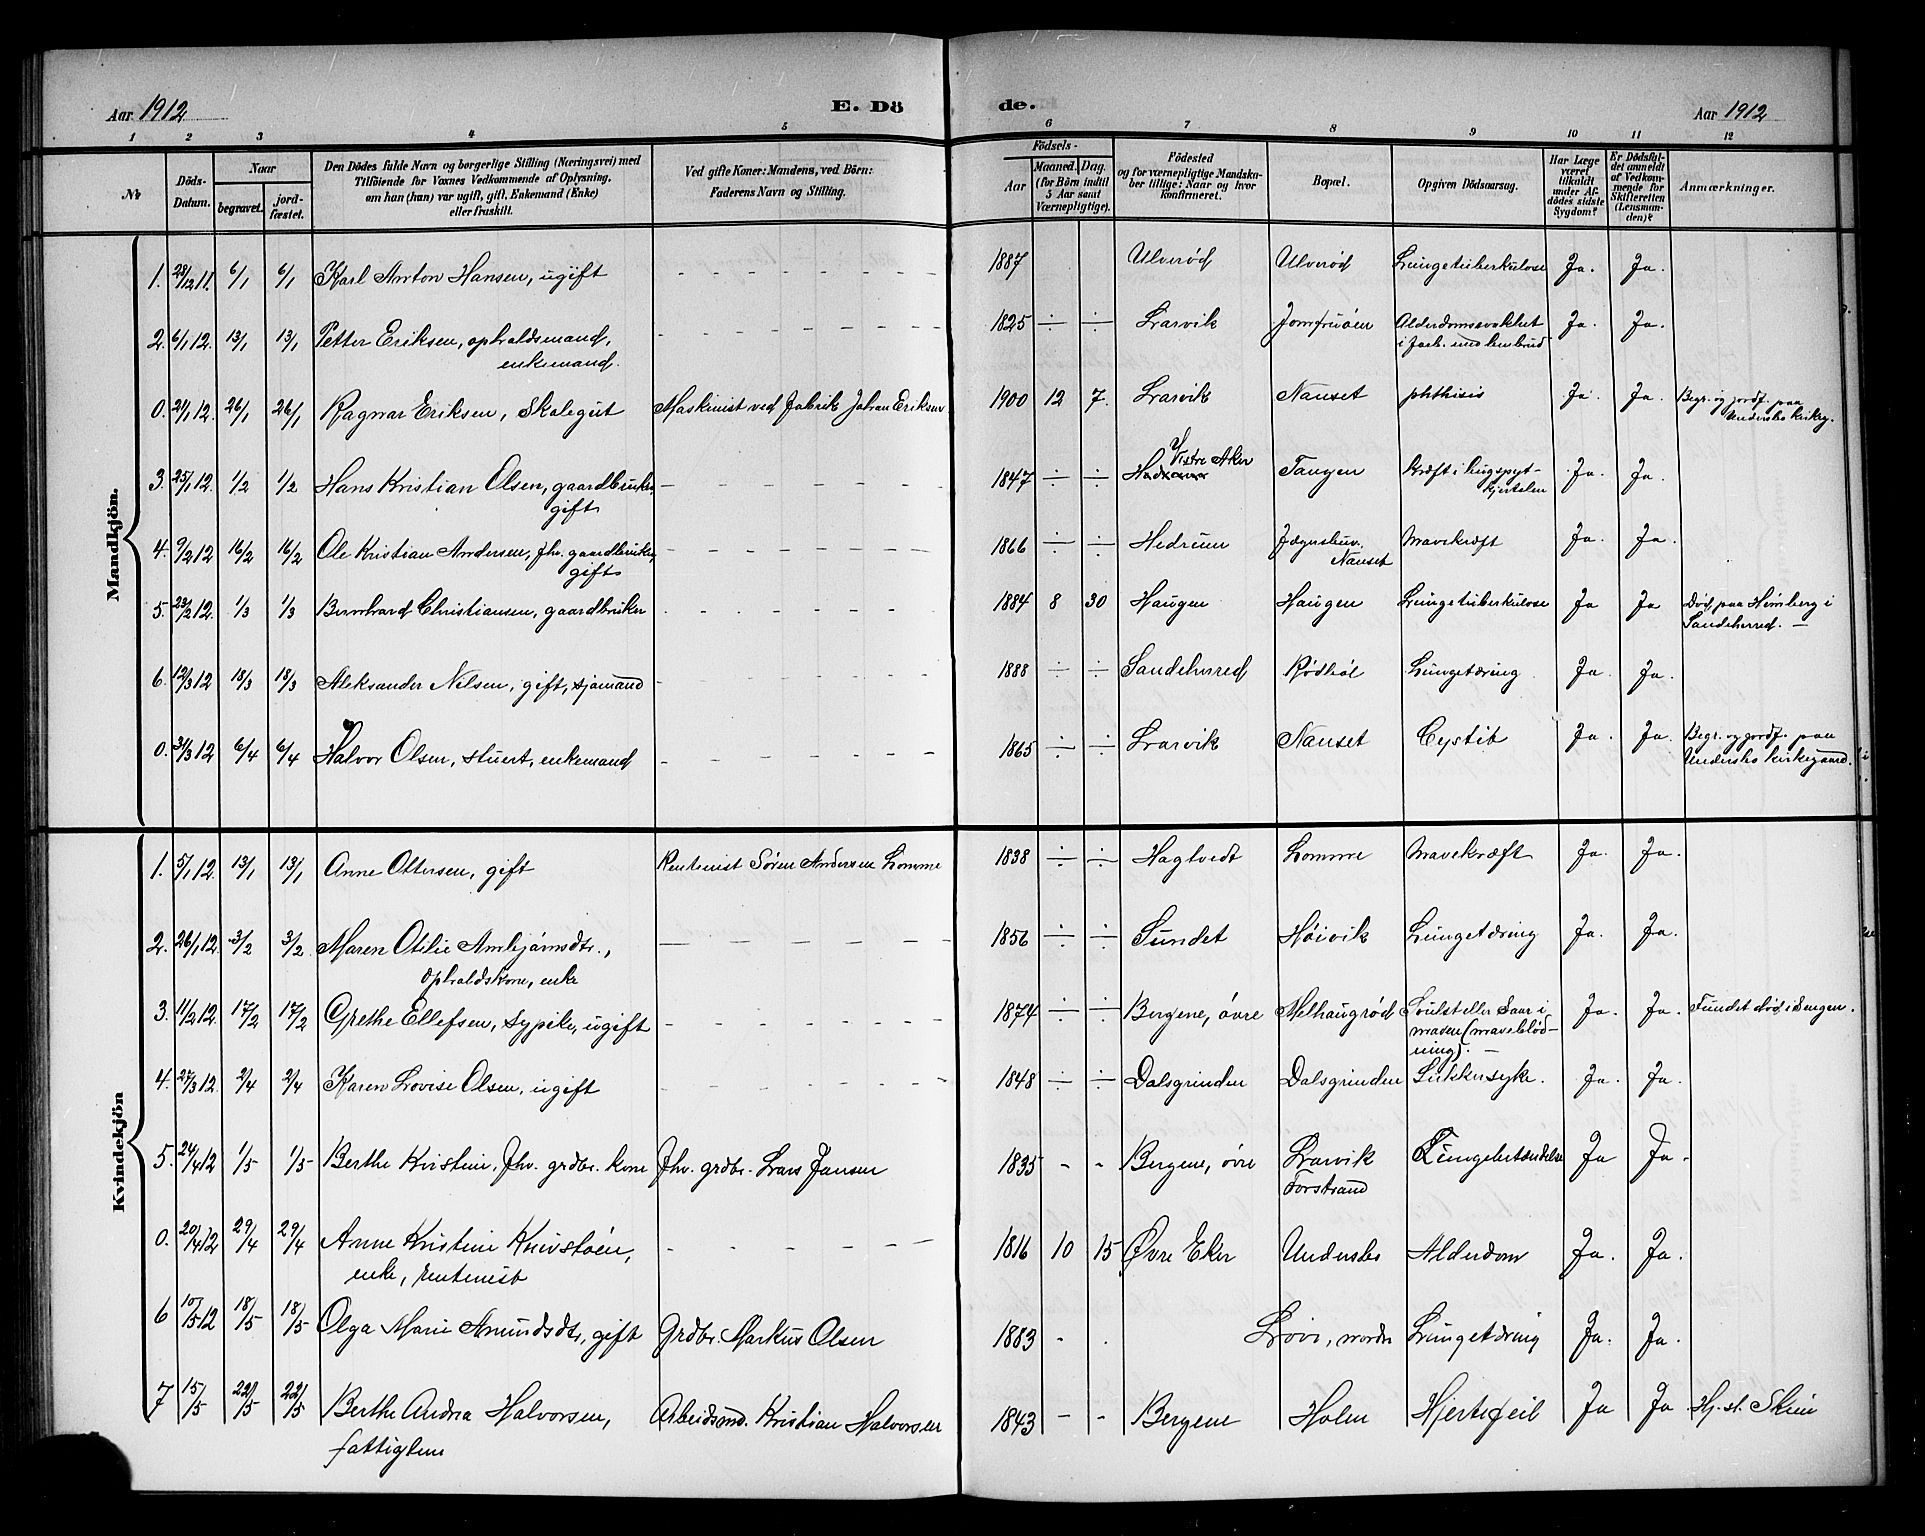 Aar 1912
E. Dö
de.
Aar 1912
1 2 3 4 5 6 7 8 9 10 11 12
Nr
Döds-Datum.
Naar
begravet.
jord-fæstet.
Den Dödes fulde Navn og borgerlige Stilling (Næringsvei) med
Tilföiende for Voxnes Vedkommende af Oplysning,
om han (hun) var ugift, gift, Enkemand (Enke)
eller fraskilt.
Ved gifte Koner: Mandens, ved Börn:
Faderens Navn og Stilling.
Födsels-
Aar
Maaned. Dag.
(for Börn indtil
5 Aar samt
Værnepligtige).
Födested
og for værnepligtige Mandska-
ber tillige: Naar og hvor
konfirmeret.
Bopæl.
Opgiven Dödsaarsag.
Har Læge
været
tilkaldt
under Af-
dödes sidste
Sygdom?
Er Dödsfal-
det anmeldt
af Vedkom-
mende for
Skifteretten
(Lensman-
den)?
Anmærkninger.
Mandkjön.
1. 28/12 11. 6/1 6/1 Karl Anton Hansen, ugift - - - 1887 Ulverød Ulverød Lungetuberkulose Ja. Ja.
2. 6/1 12. 13/1 13/1 Petter Eriksen, opholdsmand, - - - 1825 ÷ ÷ Larvik Jomfruöen Alderdomssvakhet Ja. Ja.
enkemand. i forb. med benbrud
0. 21/1 12. 26/1 26/1 Ragnar Eriksen, Skolegut Maskinist ved Fabrik Johan Eriksen 1900 12 7. Larvik Nanset phthisis Ja. Ja. Begr. og jordf. paa
Undersbo kirkeg.
3. 25/1 12. 1/2 1/2 Hans Kristian Olsen, gaardbruker - - - 1847 ÷ ÷ Vestre Aker Tangen Kræft i bugspyt- Ja. Ja.
gift kjertelen
4. 9/2 12 16/2 16/2 Ole Kristian Andersen, fhv. gaardbruker, - - - 1866 ÷ ÷ Hedrum Nanset Mavekræft Ja. Ja.
gift
5. 23/2 12. 1/3 1/3 Bernhard Christiansen, gaardbruker - - - 1884 8 30 Haugen Haugen Lungetuberkulose Ja Ja Død paa Himberg i
Sandeherred. -
6. 12/3 12 18/3 18/3 Aleksander Nilsen, gift, sjømand - - - 1888 ÷ ÷ Sandeherred Rødbøl Lungetæring Ja. Ja.
0. 31/3 12 6/4 6/4 Halvor Olsen, stuert, enkemand - - - 1865 ÷ ÷ Larvik Nanset Cystit Ja. Ja. Begr. og jordf. paa
Undersbo kirkegaard.
Kvindekjön
1. 5/1 12. 13/1 13/1 Anne Ottersen, gift Rentenist Søren Andersen Lomme 1838 ÷ ÷ Hagtvedt Lomme Mavekræft Ja. Ja.
2. 26/1 12. 3/2 3/2 Maren Otilie Arnbjørnsdtr., - - - 1856 ÷ ÷ Sundet Høivik Lungetæring Ja. Ja.
opholdskone, enke
3. 11/2 12. 17/2 17/2 Grethe Ellefsen, sypike, ugift - - - 1874 ÷ ÷ Bergene, övre Melhaugrød Svulst eller Saar i Ja. Ja. Fundet død i Sengen.
maven (maveblød-
ning). -
4. 27/3 12. 2/4 2/4 Karen Lovise Olsen, ugift - - - 1848 ÷ ÷ Dalsgrinden Dalsgrinden Sukkersyke. Ja. Ja.
5. 24/4 12 1/5 1/5 Berthe Kristine, fhv. grdbr. kone Fhv. grdbr. Lars Jansen 1835 - - Bergene, övre Larvik Lungebetændelse Ja Ja.
Torstrand
0. 20/4 12 29/4 29/4 Anne Kristine - - - 1816 10 15 Øvre Eker Undersbo Alderdom Ja. Ja.
enke, rentenist
6 10/5 12 18/5 18/5 Olga Marie Amundsdtr, gift Grdbr. Markus Olsen 1883 - . Løvø, nordre Lungetæring Ja. Ja.
7 15/5 22/5 22/5 Berthe Andrea Halvorsen, Arbeidsmd. Kristian Halvorsen 1843 - - Bergene Holm Hjertefeil Ja Ja Hj. st. Skien
fattiglem